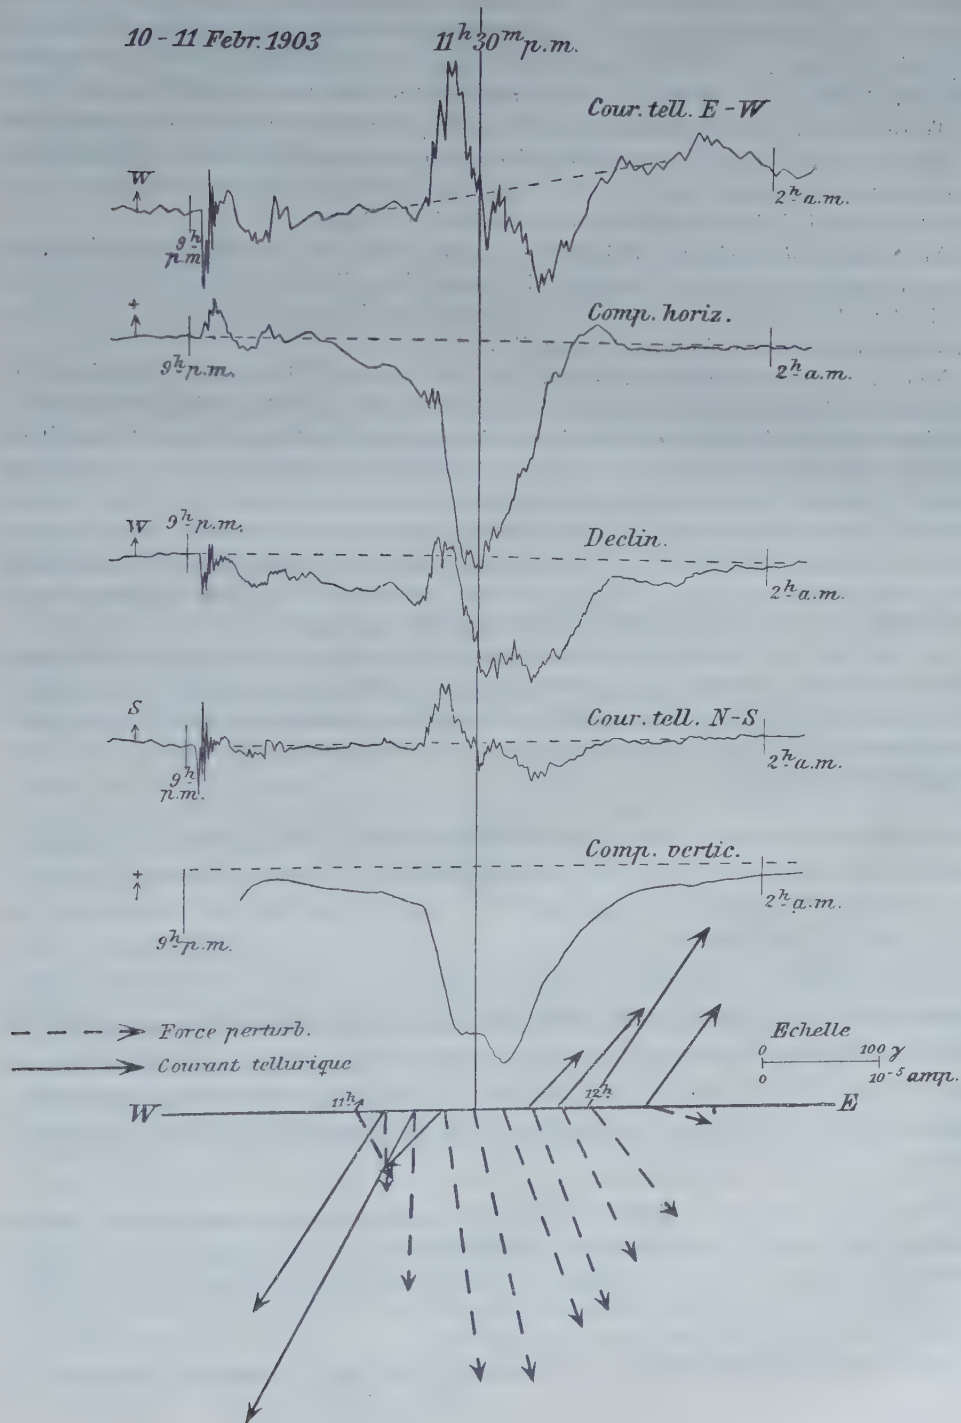 10 - 11 Febr. 1903
11ʰ 30ᵐ p.m.
Cour. tell. E - W
W
9ʰ p.m
2ʰ a.m.
+
Comp. horiz.
9ʰ p.m.
2ʰ a.m.
W
9ʰ p.m.
Declin.
2ʰ a.m.
S
Cour. tell. N-S
9ʰ p.m.
2ʰ a.m.
+
Comp. vertic.
9ʰ p.m.
2ʰ a.m.
Force perturb.
Courant tellurique
Echelle
0 100 γ
0 10⁻⁵ amp.
W 11ʰ 12ʰ E